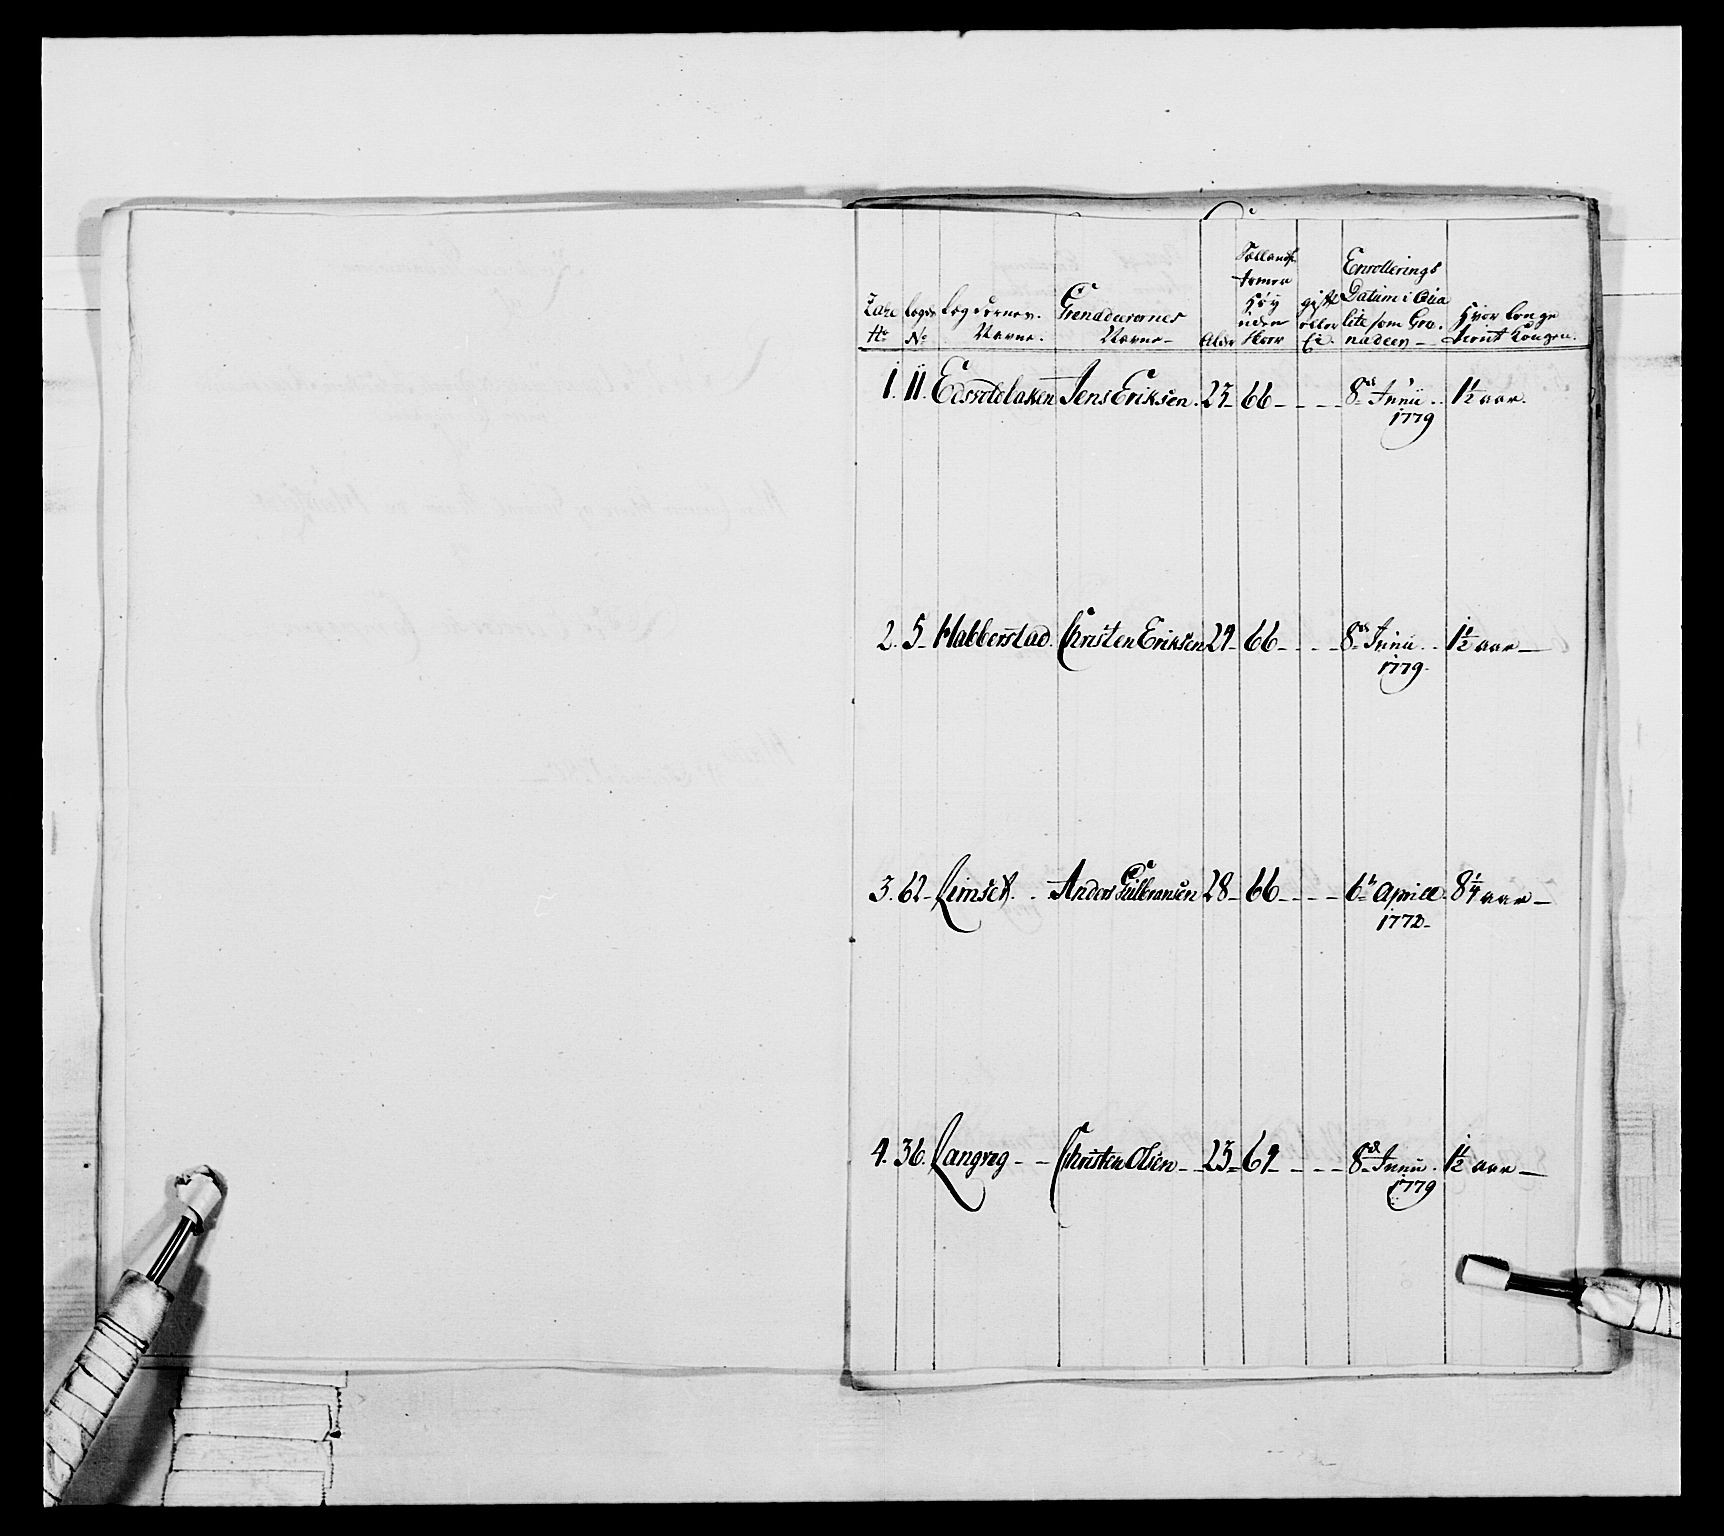 Tahl No
Legds No
Legdernes Navne.
Grenadeerernes Navne
Alder
Tollands tommer Höy uden Skoe
gift eller Ei.
Enrollerings Datum i Qua lite som Gre. nadeer
Hvor longe tient Kongen.
1. 11. Edsvoldbaken Jens Eriksen. 23 66 8de Junii 1779 1½ aar.
2. 5 Habberstad. Christen Eriksen 29 66 8de Junii 1779 1½ aar
3. 62 Limset Anders Gulbransen 28 66 6te Aprill 1772 8¼ aar
4. 36. Langreg Christen Olsen 23 69 8de Junii 1779 1½ aar